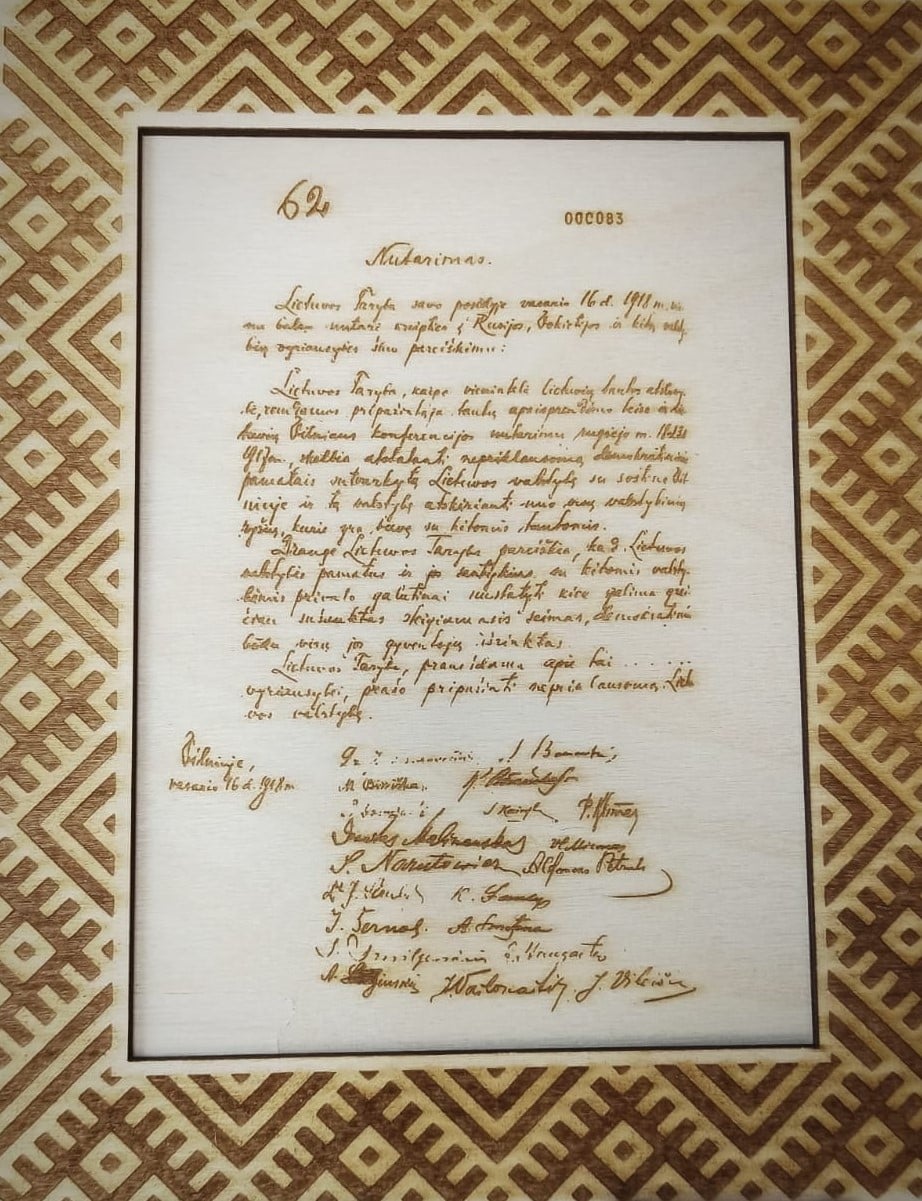 62
000083
Nutarimas.
Lietuvos Taryba savo posėdyje vasario 16 d. 1918 m. vie
nu balsu nutarė kreiptis į Rusijos, Vokietijos ir kitų valsty
bių vyriausybes šiuo pareiškimu:
Lietuvos Taryba, kaipo vienintelė lietuvių tautos atstovy-
bė, remdamos pripažintąja tautų apsisprendimo teise ir lie
tuvių Vilniaus konferencijos nutarimu rugsėjo m. 18-23
1917 m., skelbia atstatanti nepriklausomą demokratiniais
pamatais sutvarkytą Lietuvos valstybę su sostine Vil
niuje ir tą valstybę atskirianti nuo visų valstybinių
ryšių, kurie yra buvę su kitomis tautomis.
Drauge Lietuvos Taryba pareiškia, kad Lietuvos
valstybės pamatus ir jos santykius su kitomis valsty-
bėmis privalo galutinai nustatyti kiek galima grei
čiau sušauktas steigiamasis seimas, demokratiniu
būdu visų jos gyventojų išrinktas.
Lietuvos Taryba, pranešdama apie tai . . . . . .
vyriausybei, prašo pripažinti nepriklausomą Liet
vos valstybę.
Vilniuje,
vasario 16 d. 1918 m.
M. Biržiška.
P. Klimas
Donatas Malinauskas
S. Narutowicz Alfonsas Petrulis
K. Šaulys
J. Šernas A. Smetona
J. Vailokaitis J. Vileišis